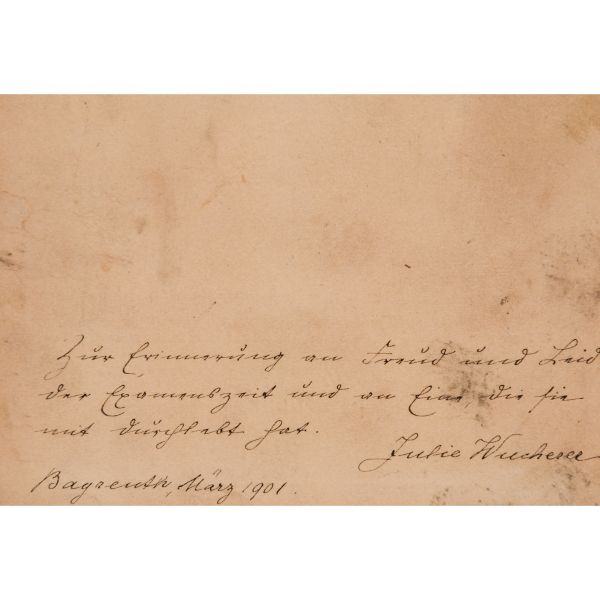 Zur Erinnerung an Freud und Leid
der Examenszeit und an Eine, die sie
mit durchlebt hat.
Julie Wucherer
Bayreuth, März 1901.